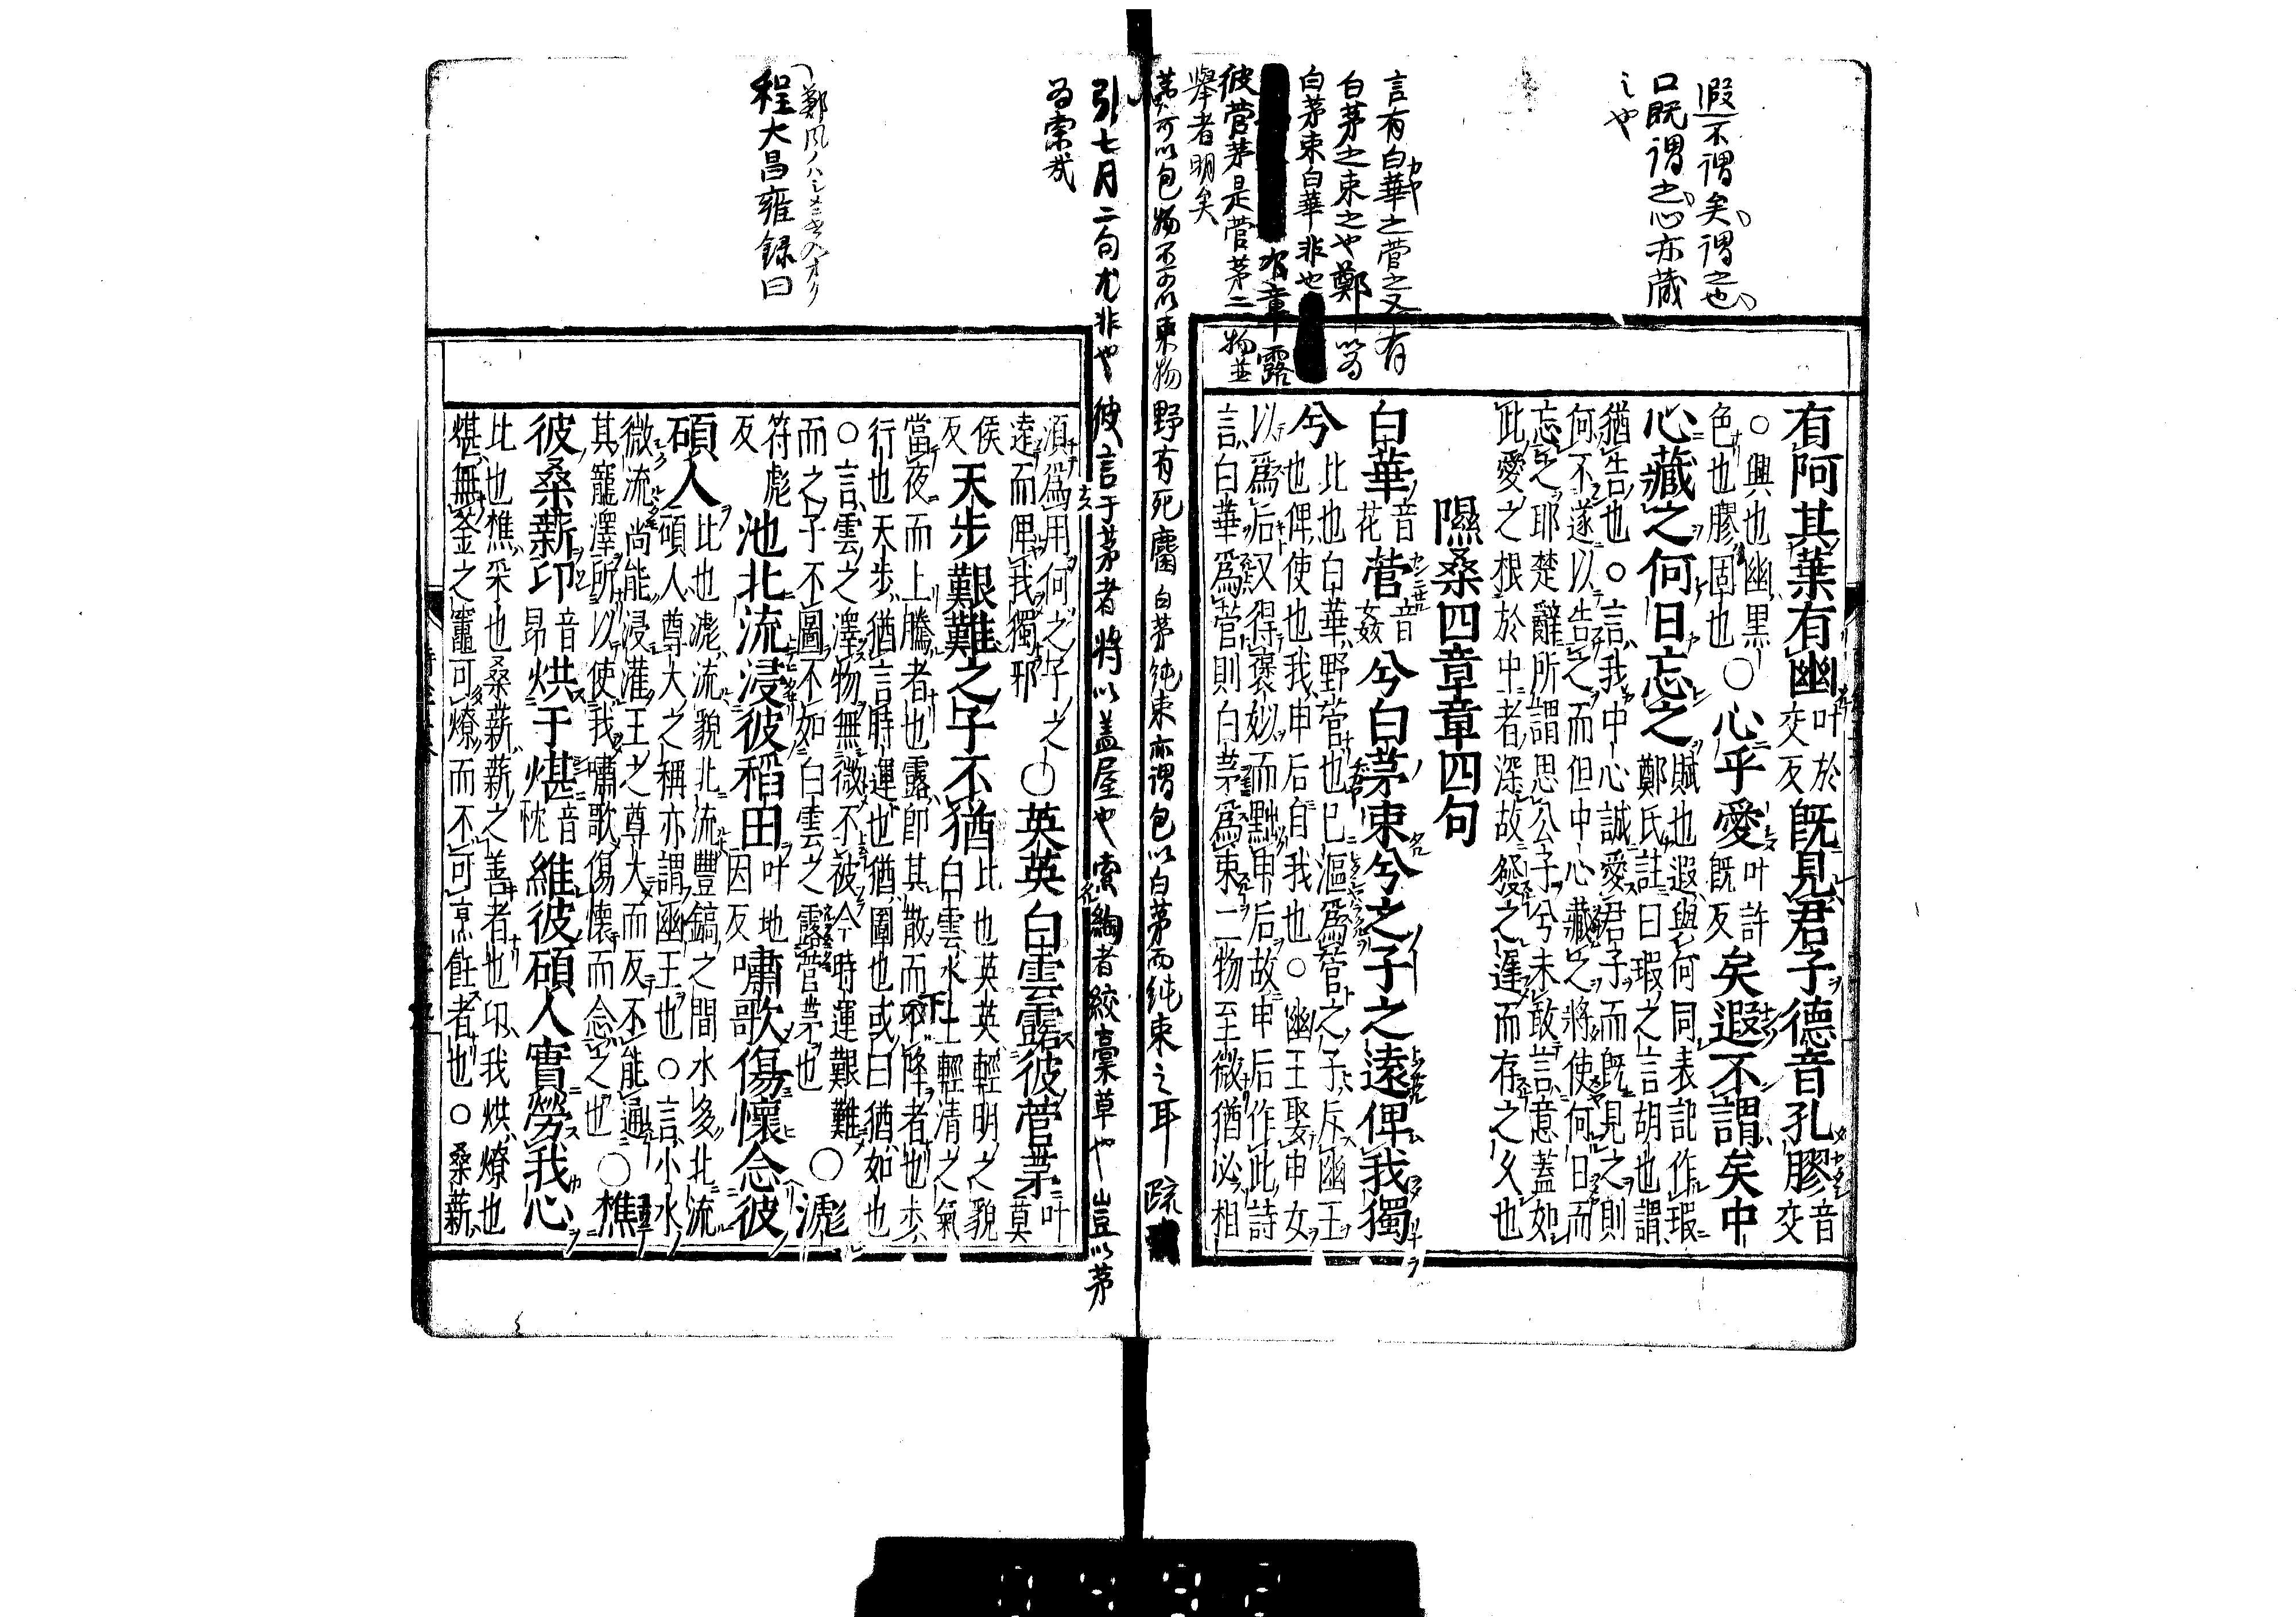 遐不謂矣謂之也
口既謂之心亦藏
之也
言有白華之菅之又有
白茅之束之也鄭以為
白茅束白華非也
章露
彼菅茅是菅茅二物並
舉者明矣
有阿其葉有幽叶於交反既見君子德音孔膠音交
○興也幽黑
色也膠固也○心乎愛叶許既反矣遐不謂矣中
心藏之何日忘之賦也遐與何同表記作瑕
鄭氏註曰瑕之言胡也謂
猶告也○言我中心誠愛君子而既見之則
何不遂以告之而但中心藏之將使何日而
忘之耶楚辭所謂思公子兮未敢言意蓋如
此愛之根於中者深故發之遲而存之久也
隰桑四章章四句
白華音花菅音姦兮白茅束兮之子之遠俾我獨
兮比也白華野菅也已漚爲菅之子斥幽王
也俾使也我申后自我也○幽王娶申女
以爲后又得褒姒而黜申后故申后作此詩
言白華爲菅則白茅爲束二物至微猶必相
茅可以包物不可以束物野有死麕白茅純束亦謂包以白茅而純束之耳疏
引七月二句尤非也彼言于茅者將以蓋屋也索綯者絞藁草也豈以茅
為索哉
須爲用何之子之
遠而俾我獨邪○英英白雲露彼菅茅叶莫
侯反天步艱難之子不猶比也英英輕明之貌
白雲水土輕清之氣
當夜而上騰者也露卽其散而下降者也步
行也天步猶言時運也猶圖也或曰猶如也
○言雲之澤物無微不被今時運艱難
而之子不圖不如白雲之露菅茅也○滮
符彪反池北流浸彼稻田叶地因反嘯歌傷懷念彼
碩人比也滮流貌北流豐鎬之間水多北流
碩人尊大之稱亦謂幽王也○言小水
微流尚能浸灌王之尊大而反不能通
其寵澤所以使我嘯歌傷懷而念之也○樵
彼桑薪卬音昂烘于煁音忱維彼碩人實勞我心
比也樵采也桑薪薪之善者也卬我烘燎也
煁無釜之竈可燎而不可烹飪者也○桑薪
鄭風ノハシメニ
程大昌雍録曰